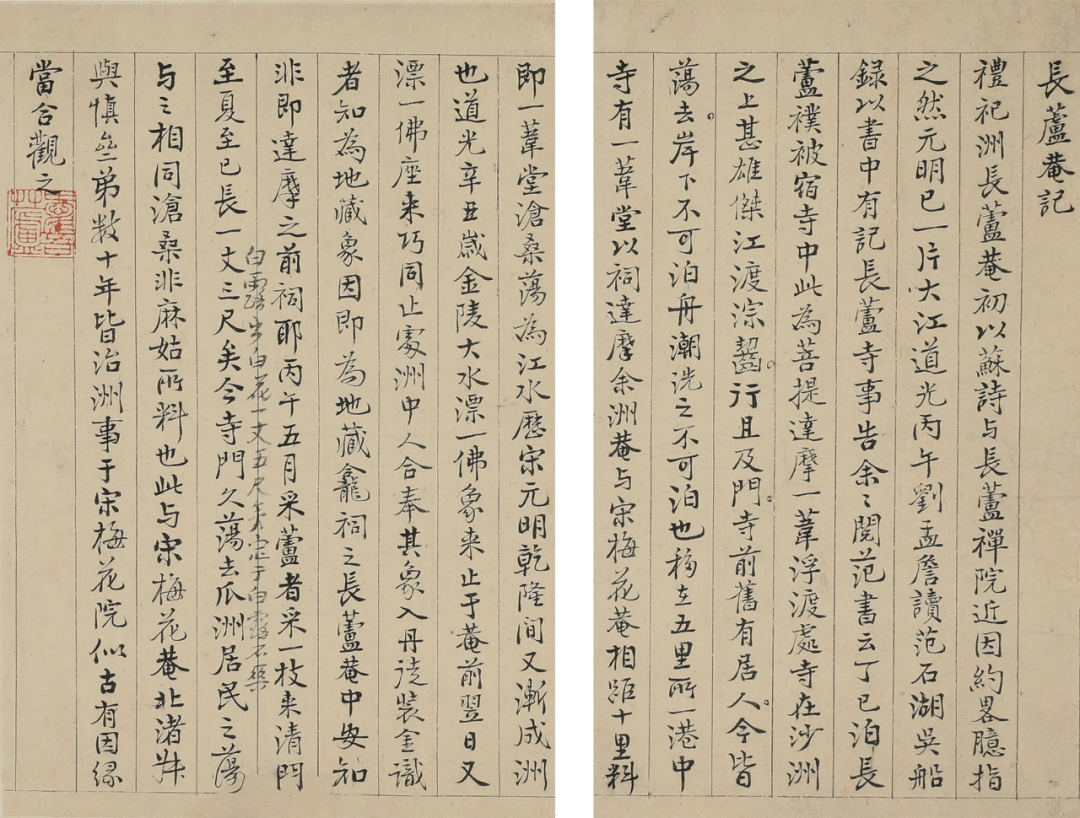 長蘆菴記
禮祀洲長蘆菴初以蘇詩与長蘆禪院近因約畧臆指
之然元明已一片大江道光丙午劉孟詹讀范石湖吳船
録以書中有記長蘆寺事告余〻閱范書云丁巳泊長
蘆襆被宿寺中此為菩提達摩一葦浮渡處寺在沙洲
之上甚雄傑江渡淙齧行且及門寺前舊有居人今皆
蕩去岸下不可泊舟潮洗之不可泊也移在五里所一港中
寺有一葦堂以祠達摩余洲菴与宋梅花菴相距十里料
即一葦堂滄桑蕩為江水歷宋元明乾隆间又漸成洲
也道光辛丑歲金陵大水漂一佛象来止于菴前翌日又
漂一佛座来巧同止處洲中人合奉其象入丹徒裝金識
者知為地藏象因即為地藏龕祠之長蘆菴中安知
非即達摩之前祠耶丙午五月采蘆者采一枝来清門
白露生白花一丈五尺
至夏至已長一丈三尺矣今寺門久蕩去瓜洲居民之蕩
与之相同滄桑非麻姑所料也此与宋梅花菴北渚
與慎叁弟数十年皆治洲事于宋梅花院似古有因缘
當合觀之